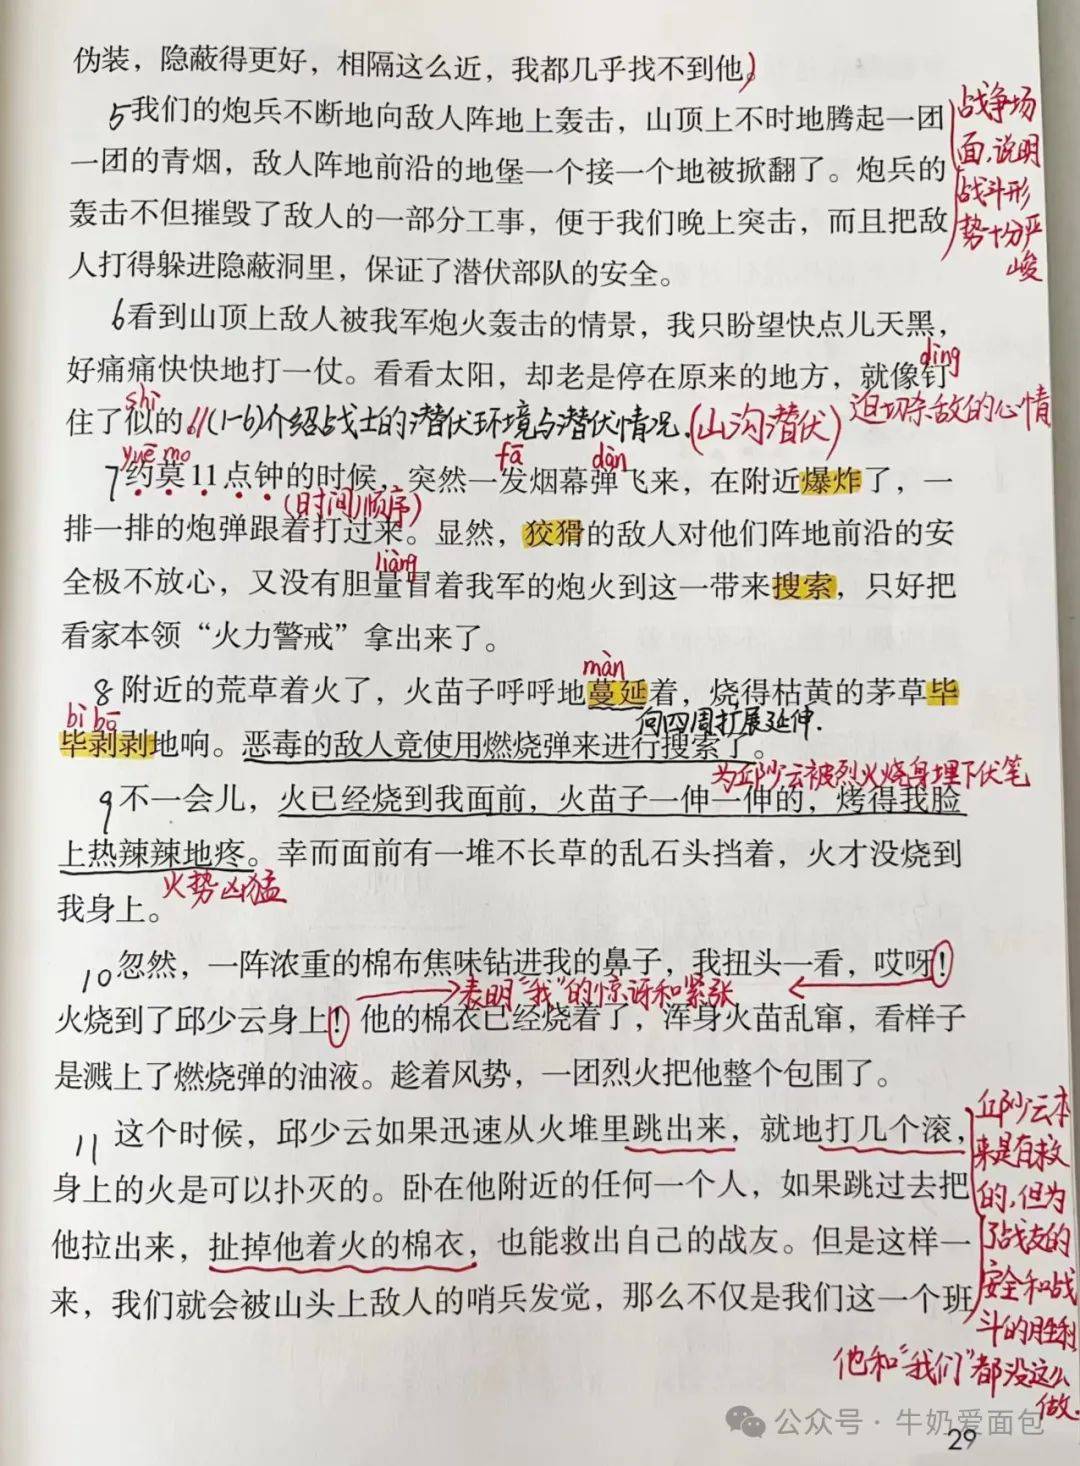 伪装，隐蔽得更好，相隔这么近，我都几乎找不到他。)
5我们的炮兵不断地向敌人阵地上轰击，山顶上不时地腾起一团
一团的青烟，敌人阵地前沿的地堡一个接一个地被掀翻了。炮兵的
轰击不但摧毁了敌人的一部分工事，便于我们晚上突击，而且把敌
人打得躲进隐蔽洞里，保证了潜伏部队的安全。
战争场
面，说明
战斗形
势十分严
峻
6看到山顶上敌人被我军炮火轰击的情景，我只盼望快点儿天黑，
dìng
好痛痛快快地打一仗。看看太阳，却老是停在原来的地方，就像钉
shì
住了似的。//(1-6)介绍战士的潜伏环境与潜伏情况.(山沟潜伏)
迫切杀敌的心情
yuē mo fā dàn
7约莫11点钟的时候，突然一发烟幕弹飞来，在附近爆炸了，一
(时间)顺序
排一排的炮弹跟着打过来。显然，狡猾的敌人对他们阵地前沿的安
liàng
全极不放心，又没有胆量冒着我军的炮火到这一带来搜索，只好把
看家本领“火力警戒”拿出来了。
màn
8附近的荒草着火了，火苗子呼呼地蔓延着，烧得枯黄的茅草毕
向四周扩展延伸.
bì bō
毕剥剥地响。恶毒的敌人竟使用燃烧弹来进行搜索了。
为邱少云被烈火烧身埋下伏笔
9不一会儿，火已经烧到我面前，火苗子一伸一伸的，烤得我脸
上热辣辣地疼。幸而面前有一堆不长草的乱石头挡着，火才没烧到
火势凶猛
我身上。
10忽然，一阵浓重的棉布焦味钻进我的鼻子，我扭头一看，哎呀！
表明“我”的惊讶和紧张
火烧到了邱少云身上！他的棉衣已经烧着了，浑身火苗乱窜，看样子
是溅上了燃烧弹的油液。趁着风势，一团烈火把他整个包围了。
11这个时候，邱少云如果迅速从火堆里跳出来，就地打几个滚，
身上的火是可以扑灭的。卧在他附近的任何一个人，如果跳过去把
他拉出来，扯掉他着火的棉衣，也能救出自己的战友。但是这样一
来，我们就会被山头上敌人的哨兵发觉，那么不仅是我们这一个班
邱少云本
来是有救
的，但为
了战友的
安全和战
斗的胜利
他和“我们”都没这么
做.
公众号·牛奶爱面包
29